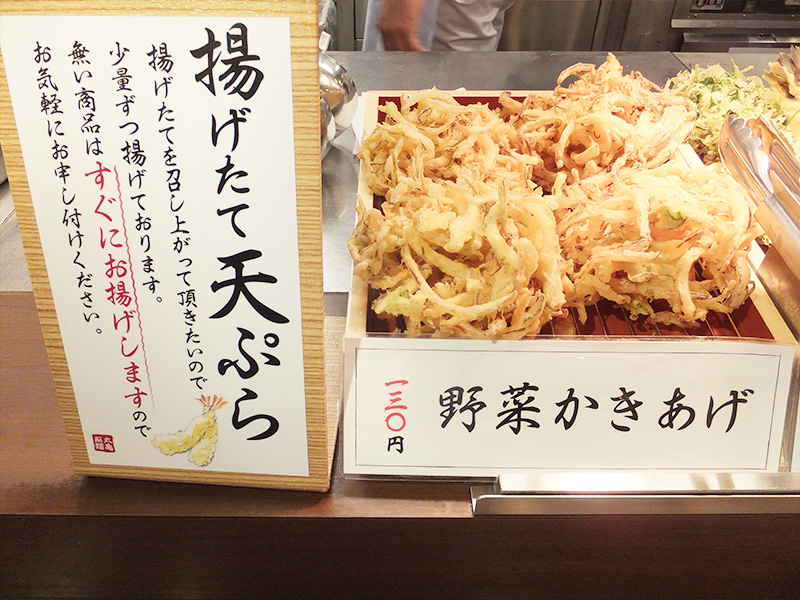 揚げたて天ぷら
揚げたてを召し上がって頂きたいので
少量ずつ揚げております。
無い商品はすぐにお揚げしますので
お気軽にお申し付けください。
丸亀
製麺
一三〇円
野菜かきあげ